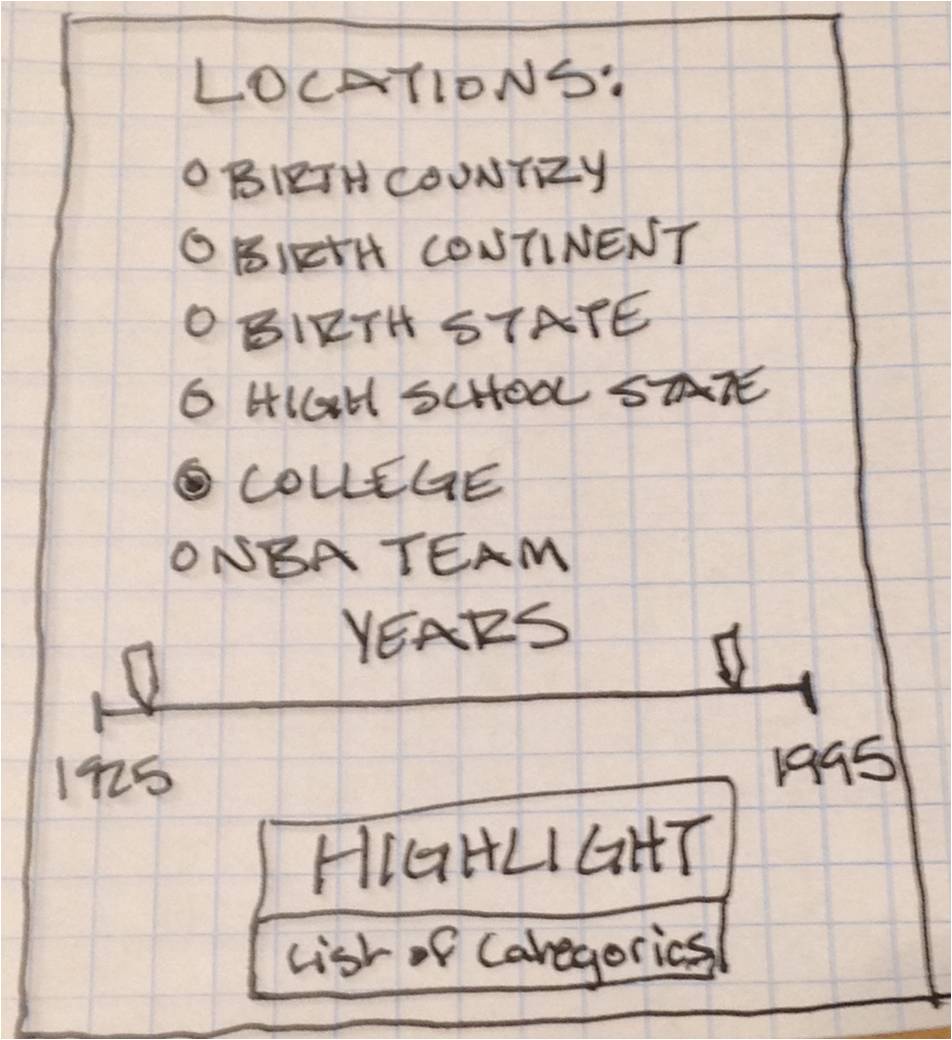 LOCATIONS:
BIRTH COUNTRY
BIRTH CONTINENT
BIRTH STATE
HIGH SCHOOL STATE
COLLEGE
NBA TEAM
YEARS
1925 1995
HIGHLIGHT
List of Categories